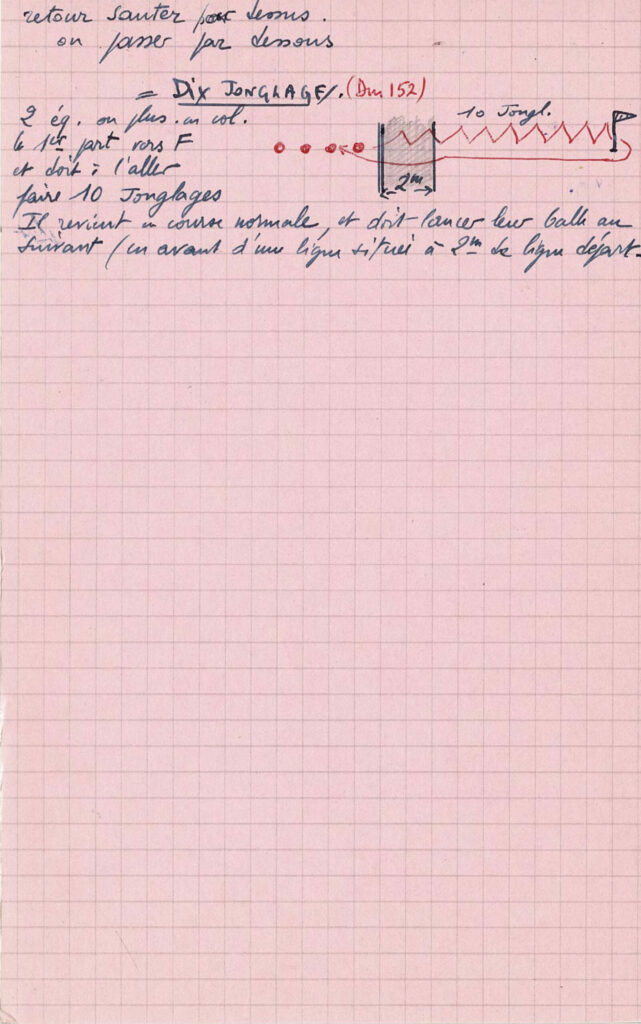 retour sauter par dessus.
ou passer par dessous
= DIX JONGLAGES. (Dm 152)
2 éq. ou plus. en col.
le 1er part vers F
et doit à l'aller
faire 10 Jonglages
10 Jongl.
2m
Il revient en course normale, et doit lancer leur balle au
suivant (en avant d'une ligne située à 2m de ligne départ.